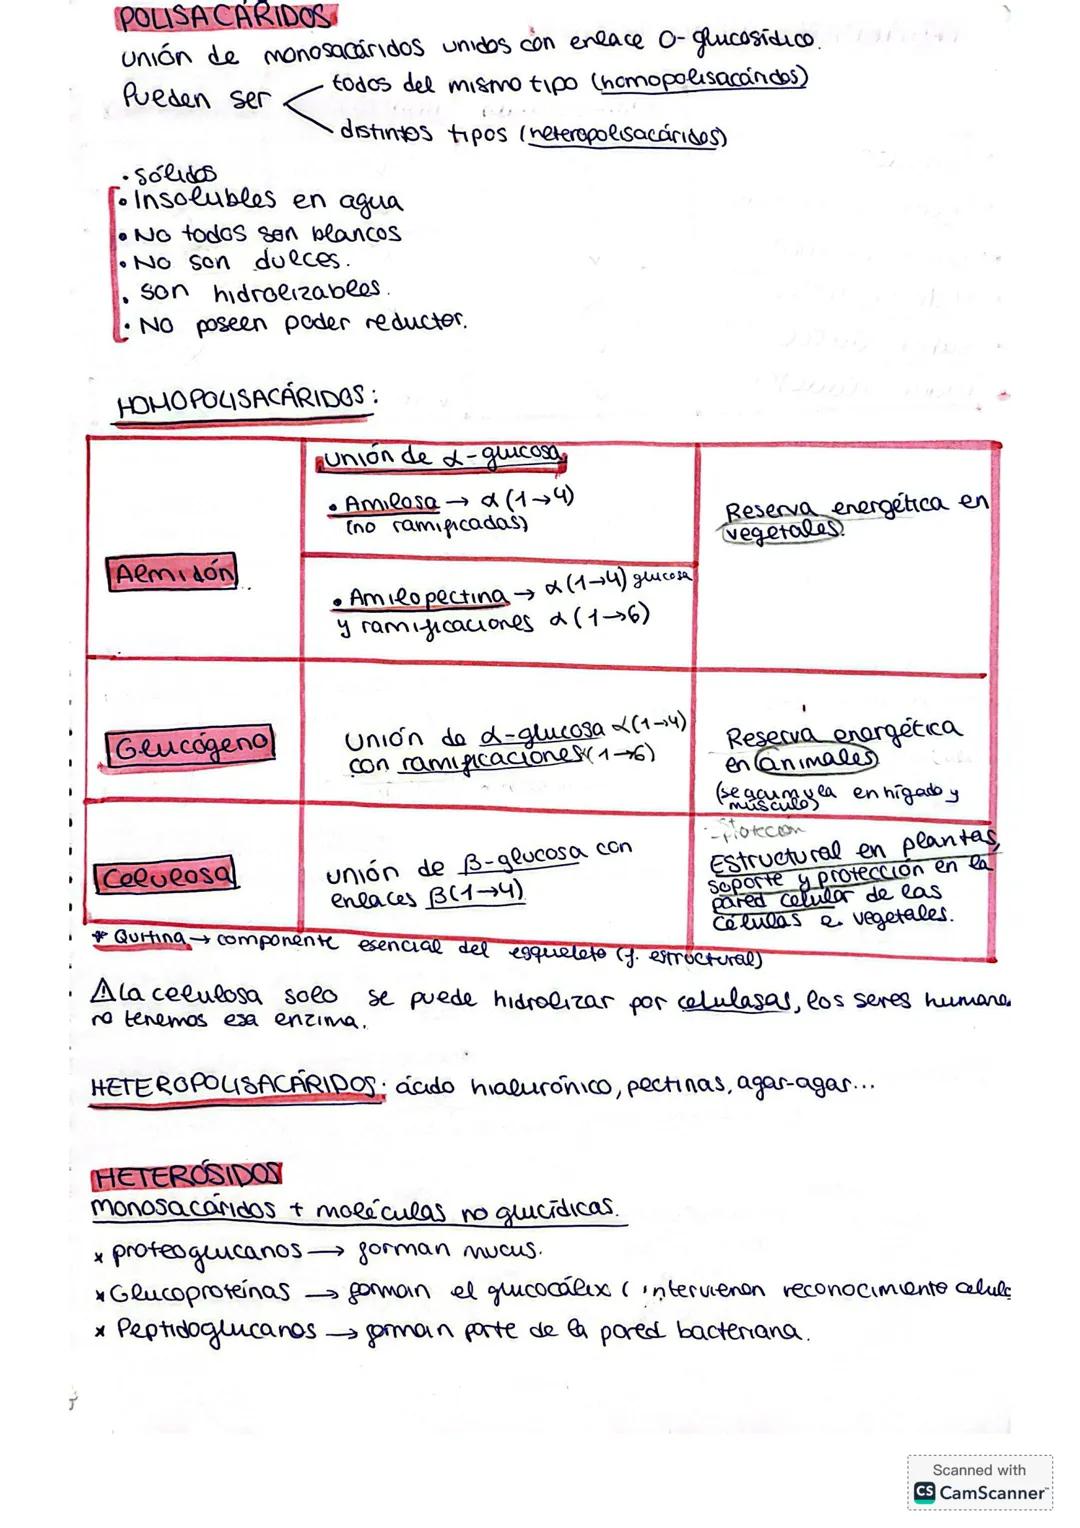 POLISACÁRIDOS
unión de monosacáridos unidos con enlace O-glucosídico.
Pueden ser
todos del mismo tipo (homopolisacáridos)
distintos tipos (heteropolisacáridos)
· sólidos
• Insolubles en agua
• No todos son blancos
• No son dulces.
. son hidrolizables.
· No poseen poder reductor.
HOMOPOLISACÁRIDOS:
Almidón
unión de α-glucosa
• Amilosa → α (1→4)
(no ramificadas)
• Amilopectina → α (1→4) glucosa
y ramificaciones α (1→6)
Reserva energética en
vegetales.
Glucógeno
Unión de α-glucosa α(1→4)
con ramificaciones α(1→6)
Reserva energética
en animales
(se acumula en hígado y
músculo)
Celulosa
unión de β-glucosa con
enlaces β(1→4)
-protección
Estructural en plantas,
soporte y protección en la
pared celular de las
células e vegetales.
* Quitina → componente esencial del esqueleto (f. estructural)
⚠ la celulosa solo se puede hidrolizar por celulasas, los seres humano
no tenemos esa enzima.
HETEROPOLISACÁRIDOS: ácido hialurónico, pectinas, agar-agar...
HETERÓSIDOS
monosacáridos + moléculas no glucídicas.
x proteoglucanos → forman mucus.
x Glucoproteínas → forman el glucocálix ( intervienen reconocimiento celula
x Peptidoglucanos → forman parte de la pared bacteriana.
Scanned with
CS CamScanner